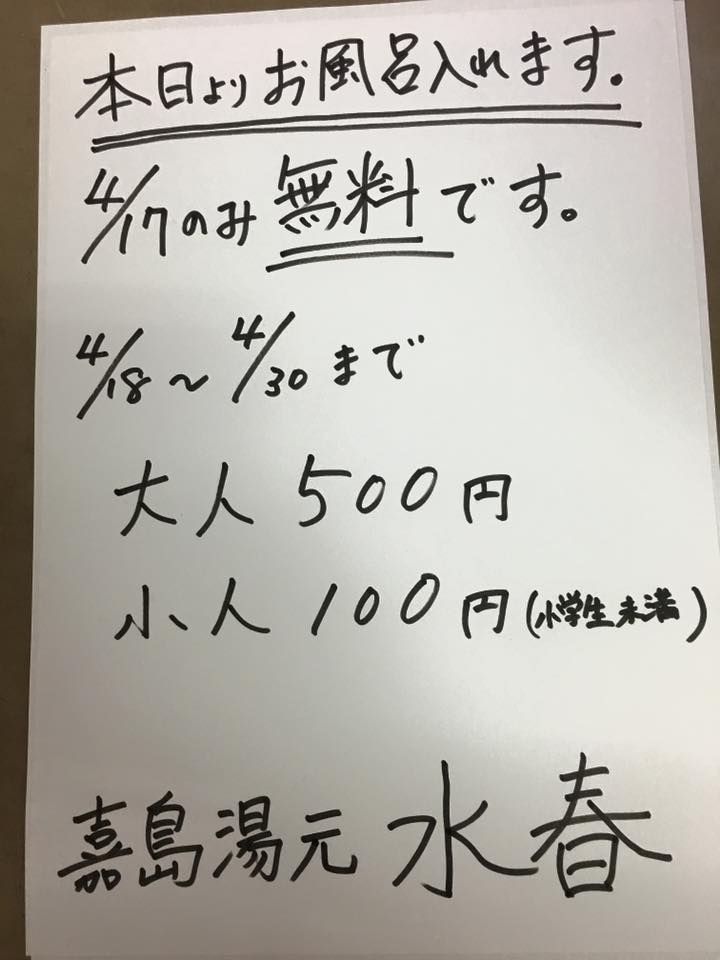 本日よりお風呂入れます。
4/17のみ無料です。
4/18～4/30まで
大人500円
小人100円(小学生未満)
嘉島湯元水春